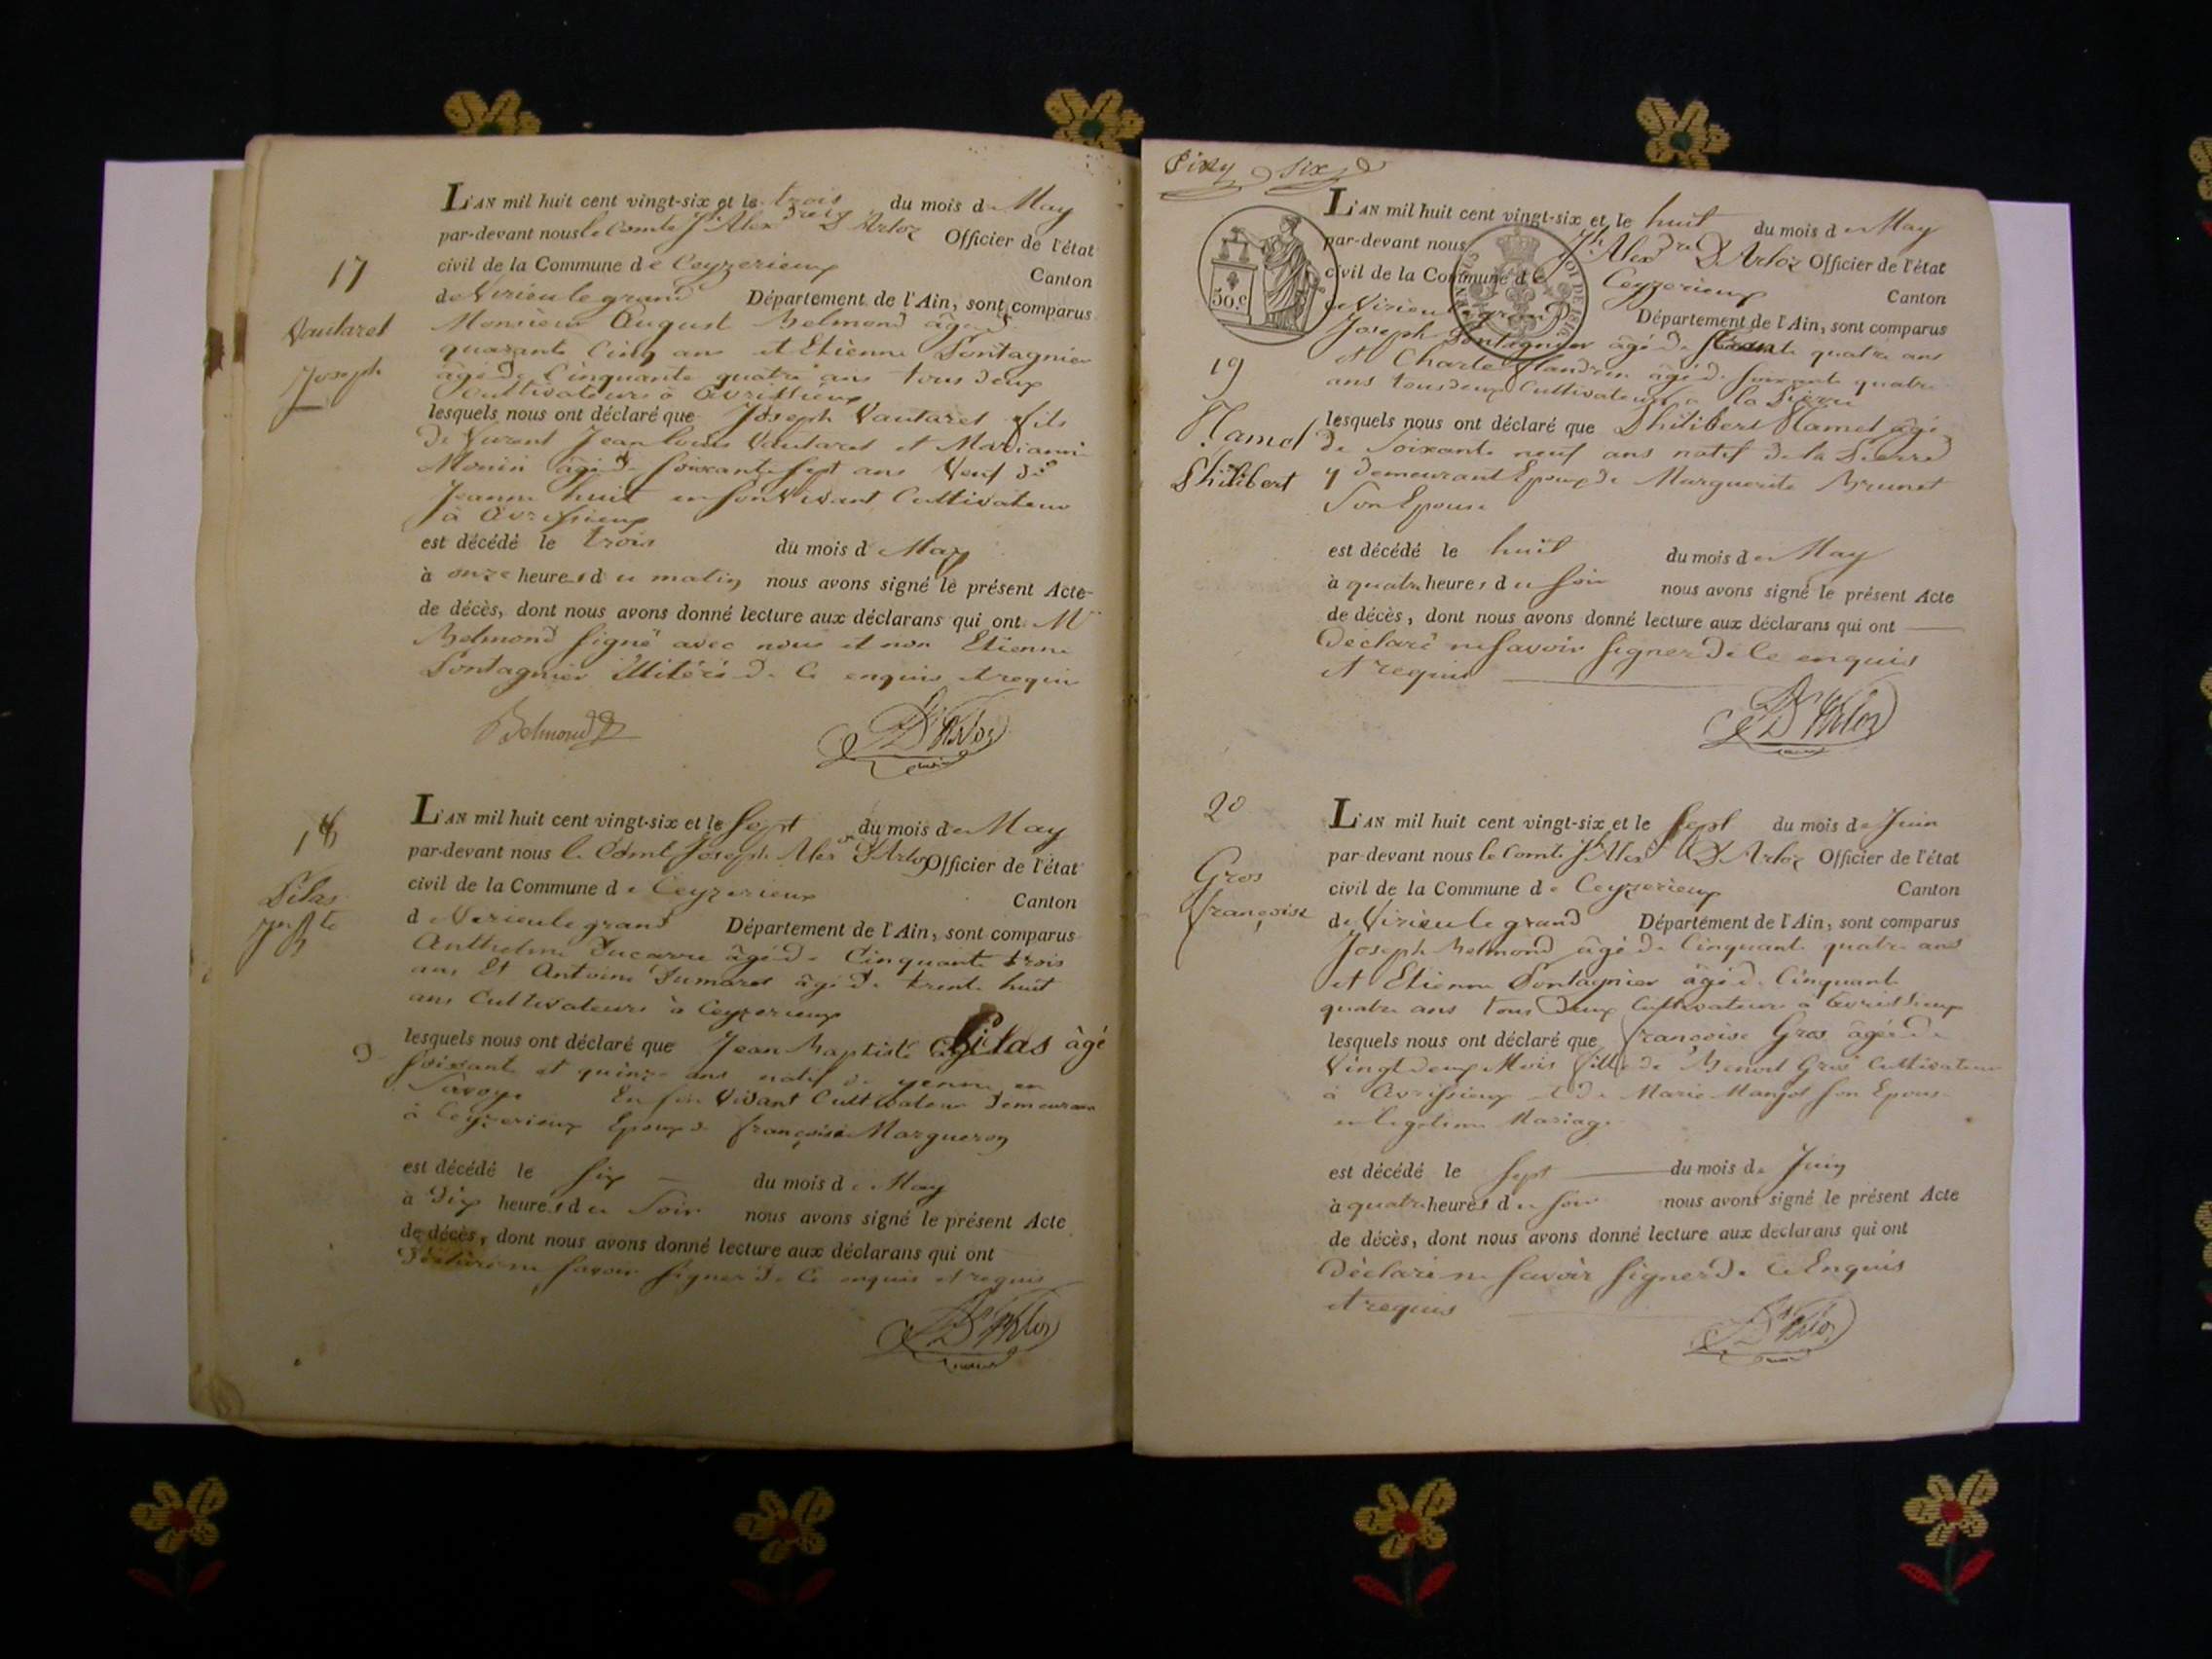 17
Vautaret
Joseph
L'AN mil huit cent vingt-six et le trois du mois de May
par-devant nous le Comte Jh Alexdre D'Arloz Officier de l'état
civil de la Commune de Ceyzerieux Canton
de Virieu le grand Département de l'Ain, sont comparus
Monsieur August Belmond âgé de
quarante Cinq ans et Etienne Pontagnier
âgé de Cinquante quatre ans tous deux
Cultivateurs à Avrissieux
lesquels nous ont déclaré que Joseph Vautaret fils
de Vivent Jean louis Vautaret et Marianne
Monin âgé de soixante sept ans Veuf de
Jeanne huit en son Vivant Cultivateur
à Avrissieux
est décédé le trois du mois d May
à onze heures du matin nous avons signé le présent Acte
de décès, dont nous avons donné lecture aux déclarans qui ont Mr
Belmond signé avec nous et non Etienne
Pontagnier Illitéré de Ce enquis et requis
Belmond D'Arloz
18
Pilas
Jn Bte
L'AN mil huit cent vingt-six et le Sept du mois de May
par-devant nous le Comte Joseph Alex D'Arloz Officier de l'état
civil de la Commune de Ceyzerieux Canton
d Virieu le grand Département de l'Ain, sont comparus
Anthelme Ducarre âgé de Cinquante trois
ans Et Antoine Dumarest âgé de trente huit
ans Cultivateurs à Ceyzerieux
lesquels nous ont déclaré que Jean Baptiste Pilas âgé
de soixante et quinze ans natif de yenne en
Savoye En son Vivant Cultivateur Demeurant
à Ceyzerieux Epoux de françoise Margueron
est décédé le six du mois de May
à Dix heures du Soir nous avons signé le présent Acte
de décès, dont nous avons donné lecture aux déclarans qui ont
Déclaré ne savoir signer de Ce enquis et requis
D'Arloz
six
50.C
19
Hamel
Philibert
L'AN mil huit cent vingt-six et le huit du mois de May
par-devant nous Jh Alexdre D'Arloz Officier de l'état
civil de la Commune de Ceyzerieux Canton
de Virieu le grand Département de l'Ain, sont comparus
Joseph Pontagnier âgé de quatre ans
et Charle flandrin âgé de soixante quatre
ans tous deux Cultivateurs a la Pierre
lesquels nous ont déclaré que Philibert Hamel âgé
de Soixante neuf ans natif de la Pierre
y demeurant Epoux de Marguerite Brunet
Son Epouse
est décédé le huit du mois de May
à quatre heures du soir nous avons signé le présent Acte
de décès, dont nous avons donné lecture aux déclarans qui ont
Déclaré ne Savoir signer de Ce enquis
et requis
D'Arloz
20
Gros
françoise
L'AN mil huit cent vingt-six et le Sept du mois de Juin
par-devant nous le Comte Jh Alex D'Arloz Officier de l'état
civil de la Commune de Ceyzerieux Canton
de Virieu le grand Département de l'Ain, sont comparus
Joseph Belmond âgé de Cinquante quatre ans
et Etienne Pontagnier âgé de Cinquante
quatre ans tous Deux Cultivateurs à Avrissieux
lesquels nous ont déclaré que françoise Gros âgée de
Vingt deux Mois fille de Benoit Gros Cultivateur
à Avrissieux et de Marie Manjot son Epouse
en legitime Mariage
est décédé le Sept du mois de Juin
à quatre heures du soir nous avons signé le présent Acte
de décès, dont nous avons donné lecture aux déclarans qui ont
Déclaré ne savoir signer de Ce Enquis
et requis
D'Arloz